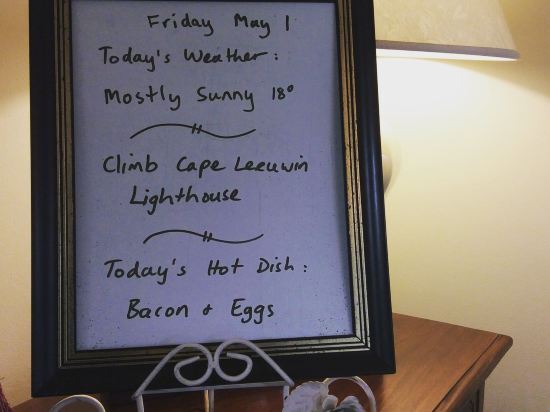 Friday May 1
Today's Weather:
Mostly Sunny 18°
Climb Cape Leeuwin
Lighthouse
Today's Hot Dish:
Bacon & Eggs